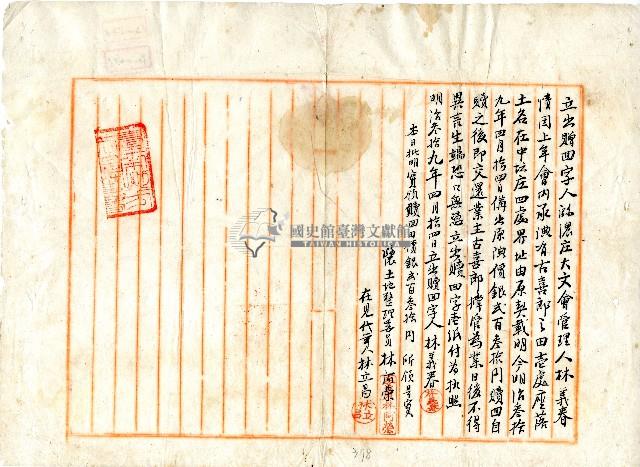 立出贖回字人瀰濃庄大文會管理人林義春
情因上年會內承典有古喜郎之田壱處座落
土名在中坛庄四處界址由原契載明今明治叁拾
九年四月拾四日備出原典價銀弍百叁拾円贖回自
贖之後即交還業主古喜郎掌管為業日後不得
異言生端恐口無憑立出贖回字壱紙付為执照
明治叁拾九年四月拾四日立出贖回字人林義春
本日批明實領贖回田價銀弍百叁拾円所領是實
土地整理委員林
在見代筆人林立昌
國史館臺灣文獻館
TAIWAN HISTORICA
398